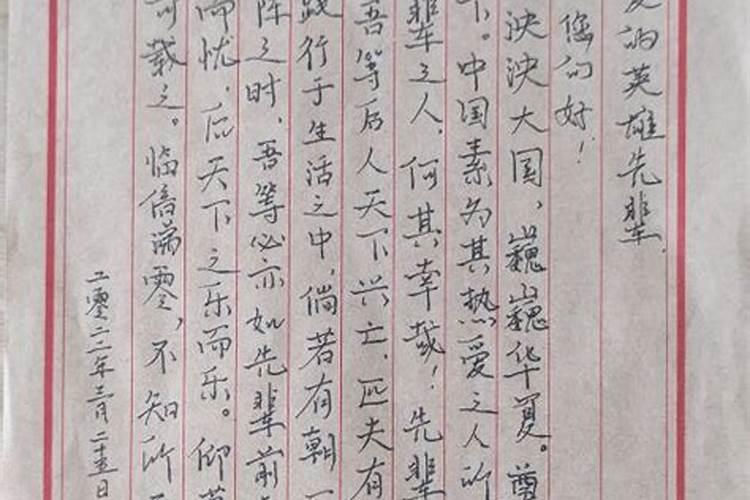 爱的英雄先辈,
您们好!
泱泱大国,巍巍华夏。
下。中国素为其热爱之人所
辈之人,何其幸哉!先辈
吾等后人天下兴亡,匹夫有
践行于生活之中,倘若有朝一
阵之时,吾等必亦如先辈前
而忧,后天下之乐而乐。仰
可载之。临信涕零,不知所
二零二二年三月二十五日